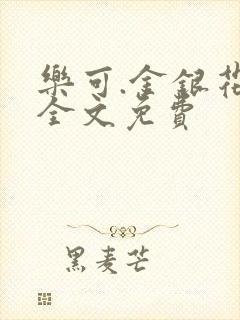 樂可.金銀花
全文免費
黑麦芒